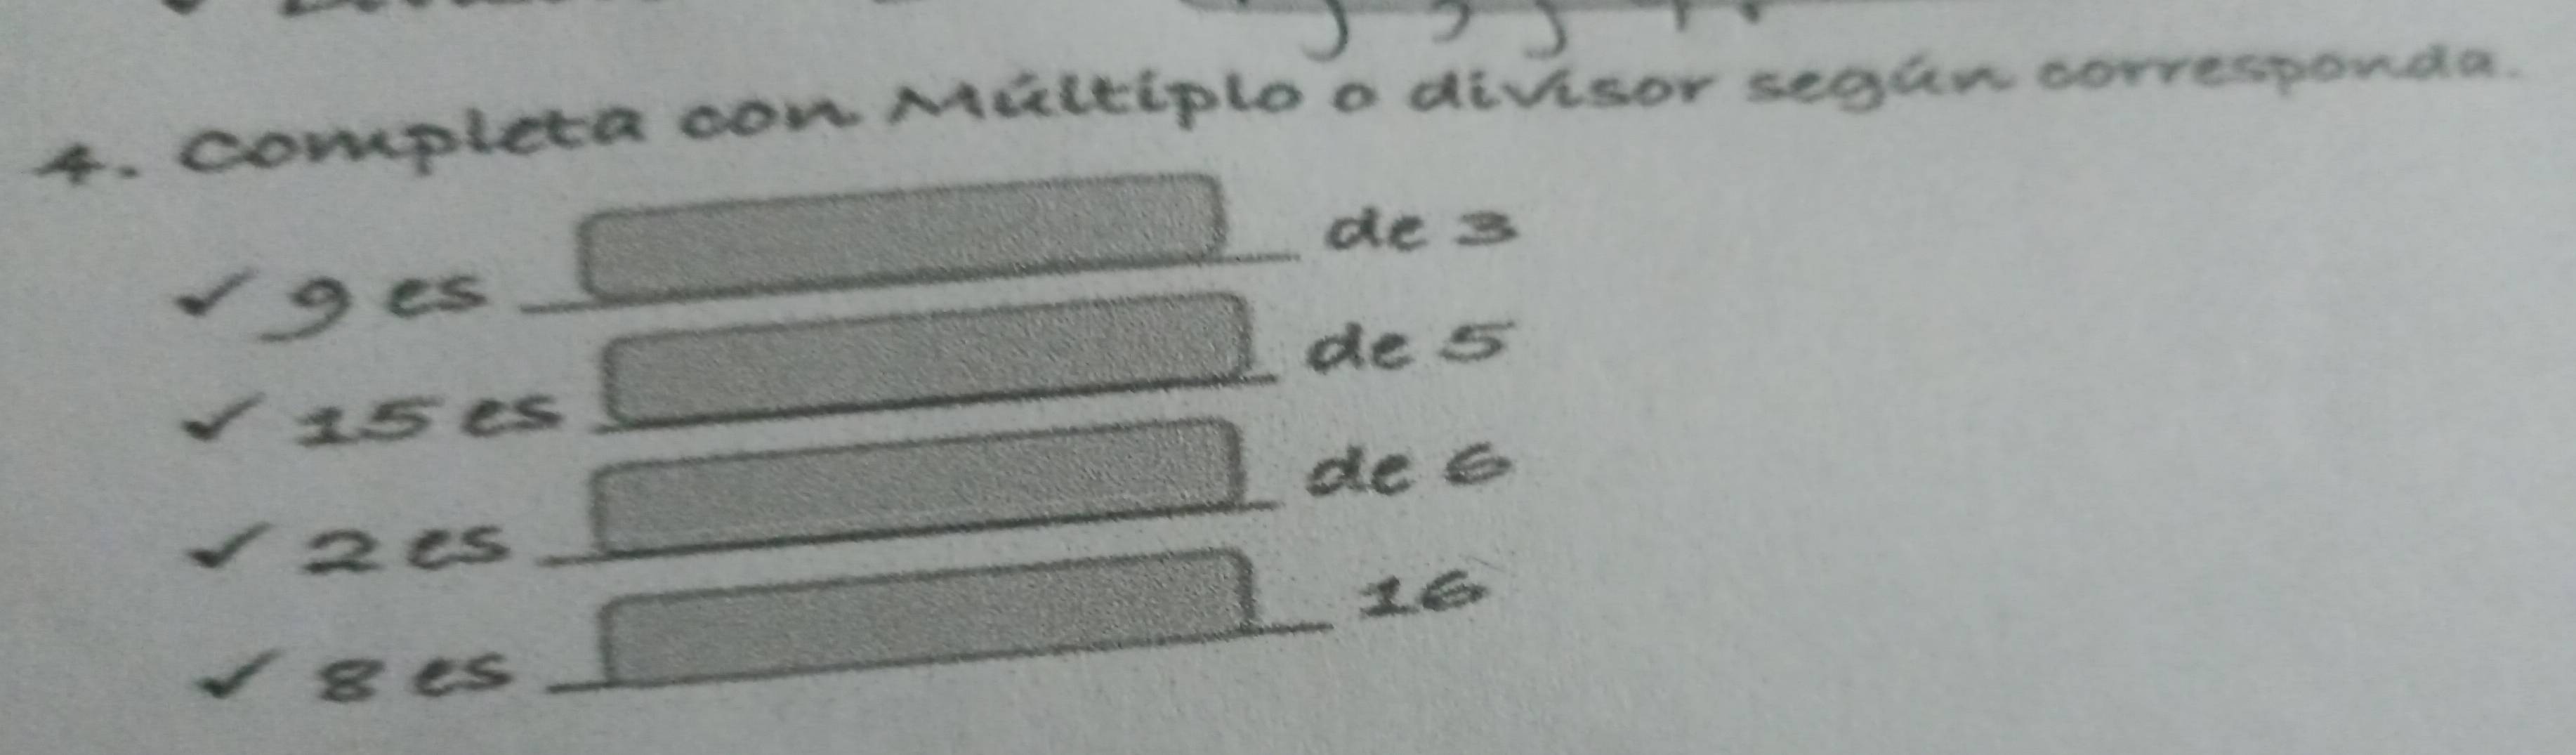 4. Completa con Múltiplo o divisor según corresponda.
✓ 9 es ___ de 3
✓ 15 es ___ de 5
✓ 2 es ___ de 6
✓ 8 es ___ 16